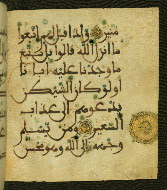 منير وإذا قيل لهم اتبعوا
ما انزل الله قالوا بل نتبع
ما وجدنا عليه اباءنا
اولو كان الشيطن
يدعوهم الى عذاب
السعير ومن يسلم
وجهه الى الله وهو محسن